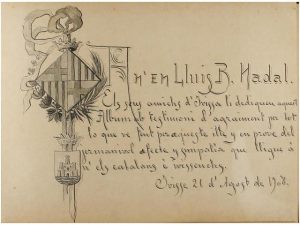 A n'en Lluis B. Nadal.
Els seus amichs d'Ivissa li dediquen aquest
Album ab testimoni d'agraiment per tot
lo que ve fent per aqueste illa y en prova del
germanivol afecte y simpatía que lliguen á
n'els catalans é ivissenchs.
Ivissa 21 d'Agost de 1908.